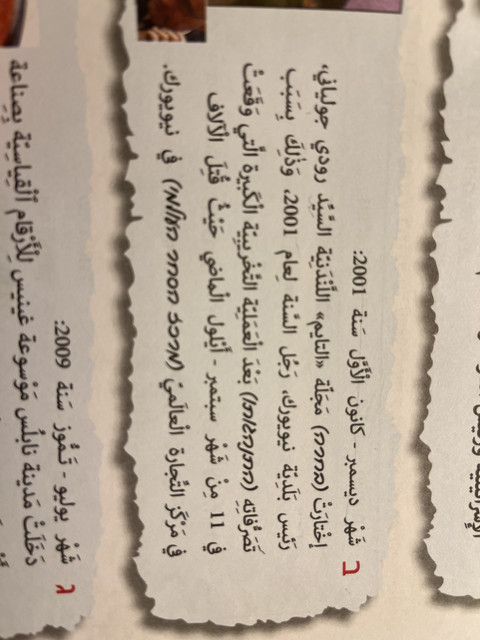 ב شَهْر ديسمبر - كانون الْأَوَّل سَنة 2001:
إخْتارَتْ (בחרה) مَجَلّة «التايم» اللَّنْدَنِيّة السَّيِّد رودي جولياني،
رَئيس بَلَدِيّة نيويورك، رَجُل السَّنة لِعام 2001، وَذٰلِكَ بِسَبَب
تَصَرُّفاتِهِ (התנהגותו) بَعْدَ الْعَمَلِيّة التَّخْريبِيّة الْكَبيرة الَّتي وَقَعَتْ
في 11 مِنْ شَهْر سبتمبر - أَيْلول الْماضي حَيْثُ قُتِلَ الْآلاف
في مَرْكَز التِّجارة الْعالَمِيّ (מרכז הסחר העולמי) في نيويورك.
ג شَهْر يوليو - تَمُّوز سَنة 2009:
دَخَلَتْ مَدينة نابلُس مَوْسوعة غينيس لِلْأَرْقام الْقِياسِيّة بِصِناعة